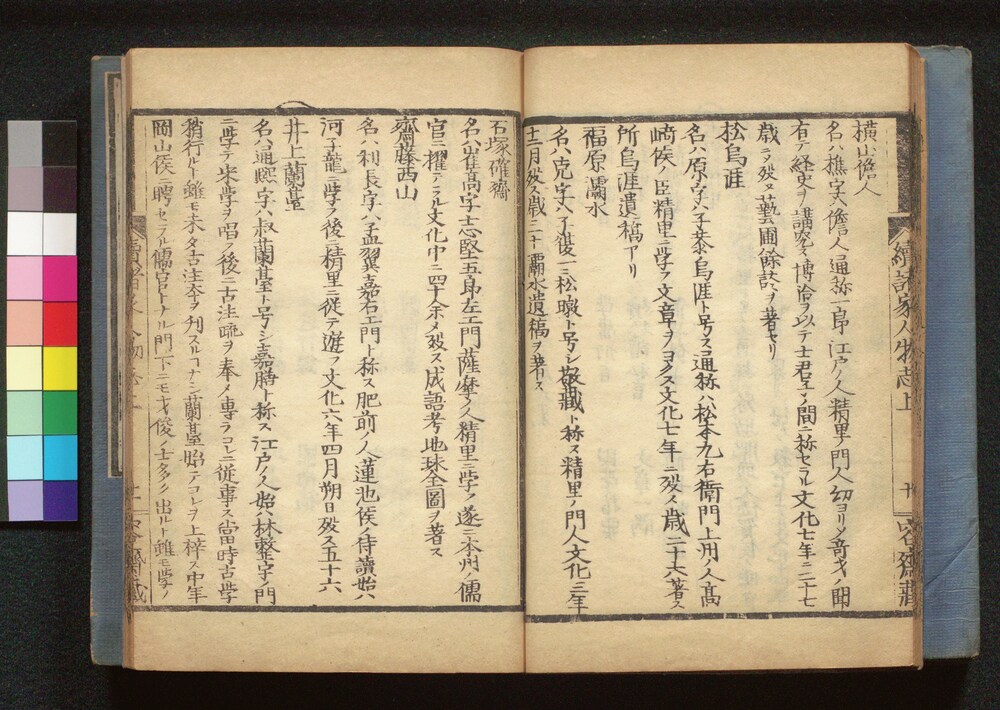 續諸家人物志上
容齋藏
橫山儋人
名ハ樵字ハ儋人通称一郎江戸ノ人精里ノ門人幼ヨリ奇才ノ聞
有テ経史ヲ講究ス博洽ヲ以テ士君子ノ間ニ称セラル文化七年ニ二十七
歳ニテ歿ス藝圃餘談ヲ著セリ
松烏涯
名ハ原字ハ子恭烏涯ト号ス通称ハ松本九右衛門上州ノ人高
崎侯ノ臣精里ニ学ヒ文章ヲヨクス文化七年ニ歿ス歳二十六著ス
所烏涯遺稿アリ
福原灞水
名ハ克字ハ子復一ニ松暾ト号シ敬藏ト称ス精里ノ門人文化三年
十二月歿ス歳三十灞水遺稿ヲ著ス
石塚確齋
名ハ崔高字ハ士志堅五郎左エ門薩摩ノ人精里ニ学フ遂ニ本州ノ儒
官ニ擢テラル文化中ニ四十余ノ歿ス成語考地球全圖ヲ著ス
齋藤西山
名ハ利長字ハ孟翼嘉右エ門ト称ス肥前ノ人蓮池侯ノ侍讀始ハ
河子龍ニ学フ後ニ精里ニ従テ遊フ文化六年四月朔日歿ス五十六
井上蘭䑓
名ハ通熙字ハ叔蘭䑓ト号シ嘉膳ト称ス江戸ノ人始ハ林整宇ノ門
ニ学テ宋学ヲ唱フ後ニ古注疏ヲ奉メ專ラコレニ従事ス當時古学
稍行ルト雖モ未タ古注本ヲ刋スルコナシ蘭䑓始テコレヲ上梓ス中年
岡山侯ニ聘セラル儒官トナル門下ニモ才俊ノ士多ク出ルト雖モ学ノ